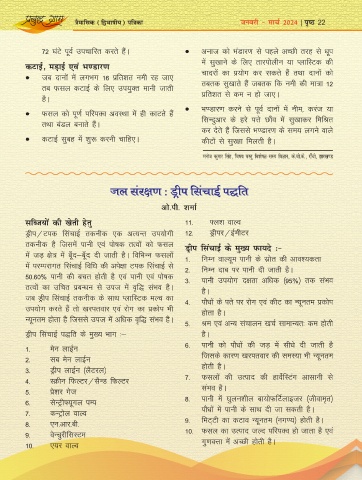 प्रबुद्ध जागृत
त्रैमासिक ( द्विभाषीय ) पत्रिका
जनवरी - मार्च 2024 | पृष्ठ 22
72 घंटे पूर्व उपचारित करते हैं।
कटाई, मड़ाई एवं भण्डारण
• जब दानों में लगभग 16 प्रतिशत नमी रह जाए
तब फसल कटाई के लिए उपयुक्त मानी जाती
है।
• फसल को पूर्ण परिपक्व अवस्था में ही काटते हैं
तथा बंडल बनाते हैं।
• कटाई सुबह में शुरू करनी चाहिए।
• अनाज को भंडारण से पहले अच्छी तरह से धूप
में सुखाने के लिए तारपोलीन या प्लास्टिक की
चादरों का प्रयोग कर सकते हैं तथा दानों को
तबतक सुखाते हैं जबतक कि नमी की मात्रा 12
प्रतिशत से कम न हो जाए।
• भण्डारण करने से पूर्व दानों में नीम, करंज या
सिन्दुआर के हरे पत्ते छाँव में सुखाकर मिश्रित
कर देते हैं जिससे भण्डारण के समय लगने वाले
कीटों से सुरक्षा मिलती है।
जल संरक्षण : ड्रीप सिंचाई पद्धति
ओ.पी. शर्मा
सब्जियों की खेती हेतु
ड्रीप/टपक सिंचाई तकनीक एक अत्यन्त उपयोगी
तकनीक है जिसमें पानी एवं पोषक तत्वों को फसल
में जड़ क्षेत्र में बूँद–बूँद दी जाती है। विभिन्न फसलों
में परम्परागत सिंचाई विधि की अपेक्षा टपक सिंचाई से
50.60% पानी की बचत होती है एवं पानी एवं पोषक
तत्वों का उचित प्रबन्धन से उपज में वृद्धि संभव है।
जब ड्रीप सिंचाई तकनीक के साथ प्लास्टिक मल्च का
उपयोग करते हैं तो खरपतवार एवं रोग का प्रकोप भी
न्यूनतम होता है जिससे उपज में अधिक वृद्धि संभव है।
ड्रीप सिंचाई पद्धति के मुख्य भाग :–
1. मेन लाईन
2. सब मेन लाईन
3. ड्रीप लाईन (लैटरल)
4. स्क्रीन फिल्टर/सैन्ड फिल्टर
5. प्रेशर गेज
6. सेन्ट्रीफ्यूगल पम्प
7. कन्ट्रोल वाल्व
8. एन.आर.बी.
9. वेन्चुरीसिस्टम
10. एयर वाल्व
11. फ्लश वाल्व
12. ड्रीपर/ईमीटर
ड्रीप सिंचाई के मुख्य फायदे :–
1. निम्न वाल्यूम पानी के स्रोत की आवश्यकता
2. निम्न दाब पर पानी दी जाती है।
3. पानी उपयोग दक्षता अधिक (95%) तक संभव
है।
4. पौधों के पत्ते पर रोग एवं कीट का न्यूनतम प्रकोप
होता है।
5. श्रम एवं अन्य संचालन खर्च सामान्यतः कम होती
है।
6. पानी को पौधों की जड़ में सीधे दी जाती है
जिसके कारण खरपतवार की समस्या भी न्यूनतम
होती है।
7. फसलों की उत्पाद की हार्वेस्टिंग आसानी से
संभव है।
8. पानी में घुलनशील बायोफर्टिलाइजर (जीवामृत)
पौधों में पानी के साथ दी जा सकती है।
9. मिट्टी का कटाव न्यूनतम (नगण्य) होती है।
10. फसल का उत्पाद जल्द परिपक्व हो जाता है एवं
गुणवत्ता में अच्छी होती है।